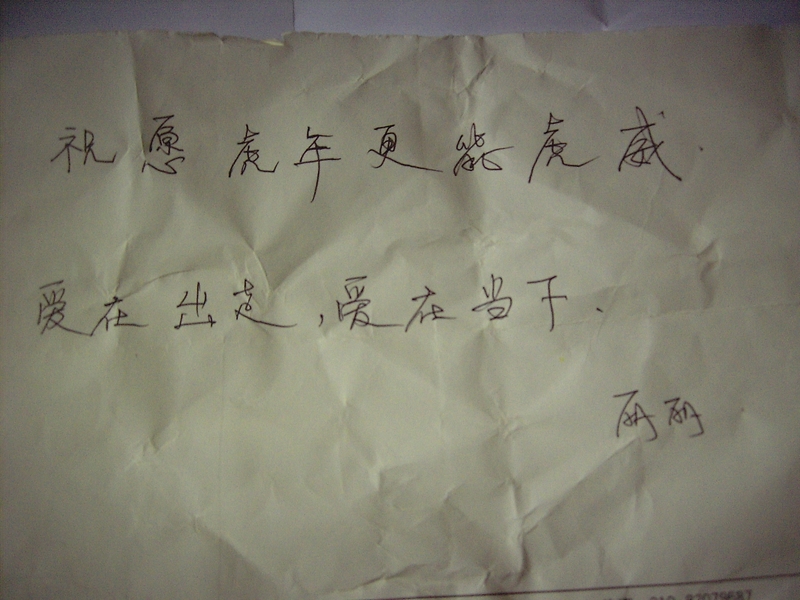 祝愿虎年更能虎威.
爱在出走,爱在当下.
丽丽
010 82079687